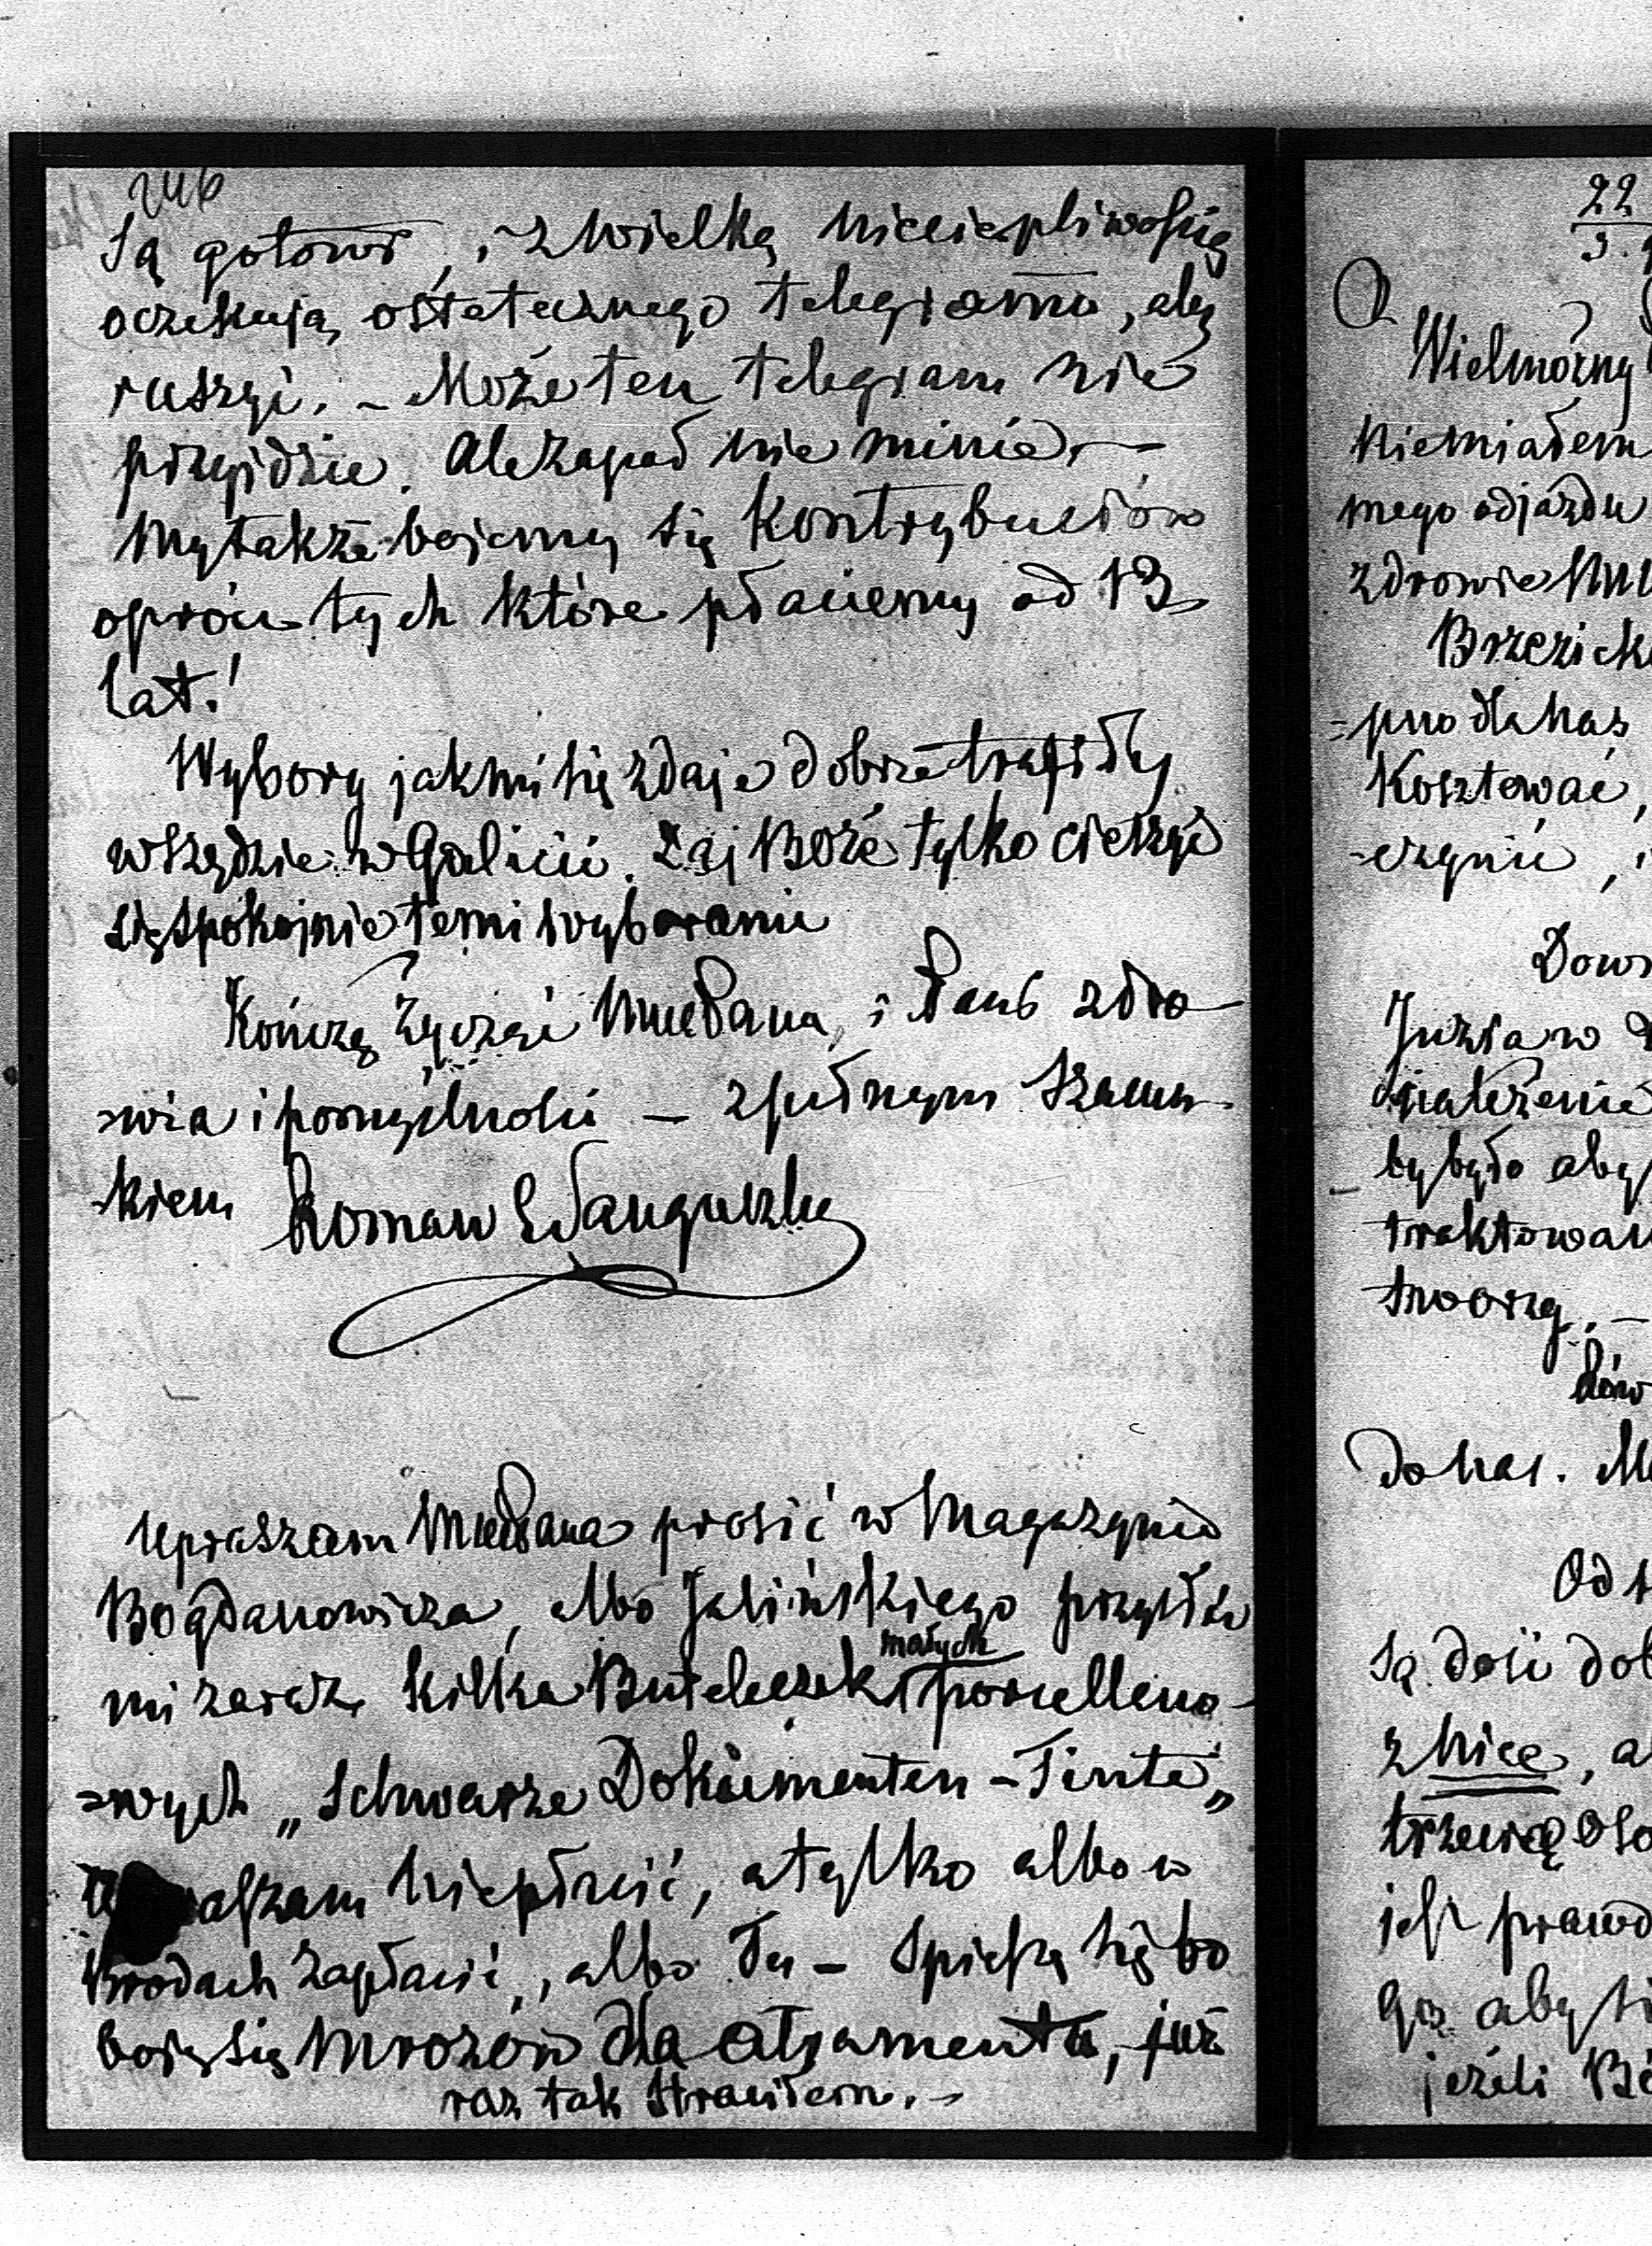 są gotowi, i z wielką niecierpliwością
oczekują ostatecznego telegramu, aby
ruszyć. – Może ten telegram nie
przyjdzie. Ale zapał nie minie. –
My także boimy się Kontrybuciów
oprócz tych które płaciemy od 13
lat!
Wybory jak mi się zdaje dobrze trafiły
wszędzie w Galicii. Daj Boże tylko cieszyć
się spokojnie temi wyborami
Kończę życząc Pana, i zdro-
=wia i pomyślności – z pełnym szacun-
-kiem Roman Sanguszko
Upraszam prosić w Magazynie
Bogdanowicza, albo Jalińskiego
mi zaraz kilka Buteleczek małych porcellano-
=wych „Schwarze Dokumenten-Tinte„
nie płacić, a tylko albo w
Brodach zapłacić, albo Tu – Spieszę się bo
boję się mrozów dla atramentu, już
raz tak straciłem. –
22
3.
Wielmożny
Niemiałem
mego odjazdu
zdrowie
=pno dla nas
Kosztować,
-czynić,
Józia w
by było aby
traktowan
tworzą. –
Do nas.
Od
są dość dob
z Nice, a
trzecią oso
jest prawd
go aby
jeżeli